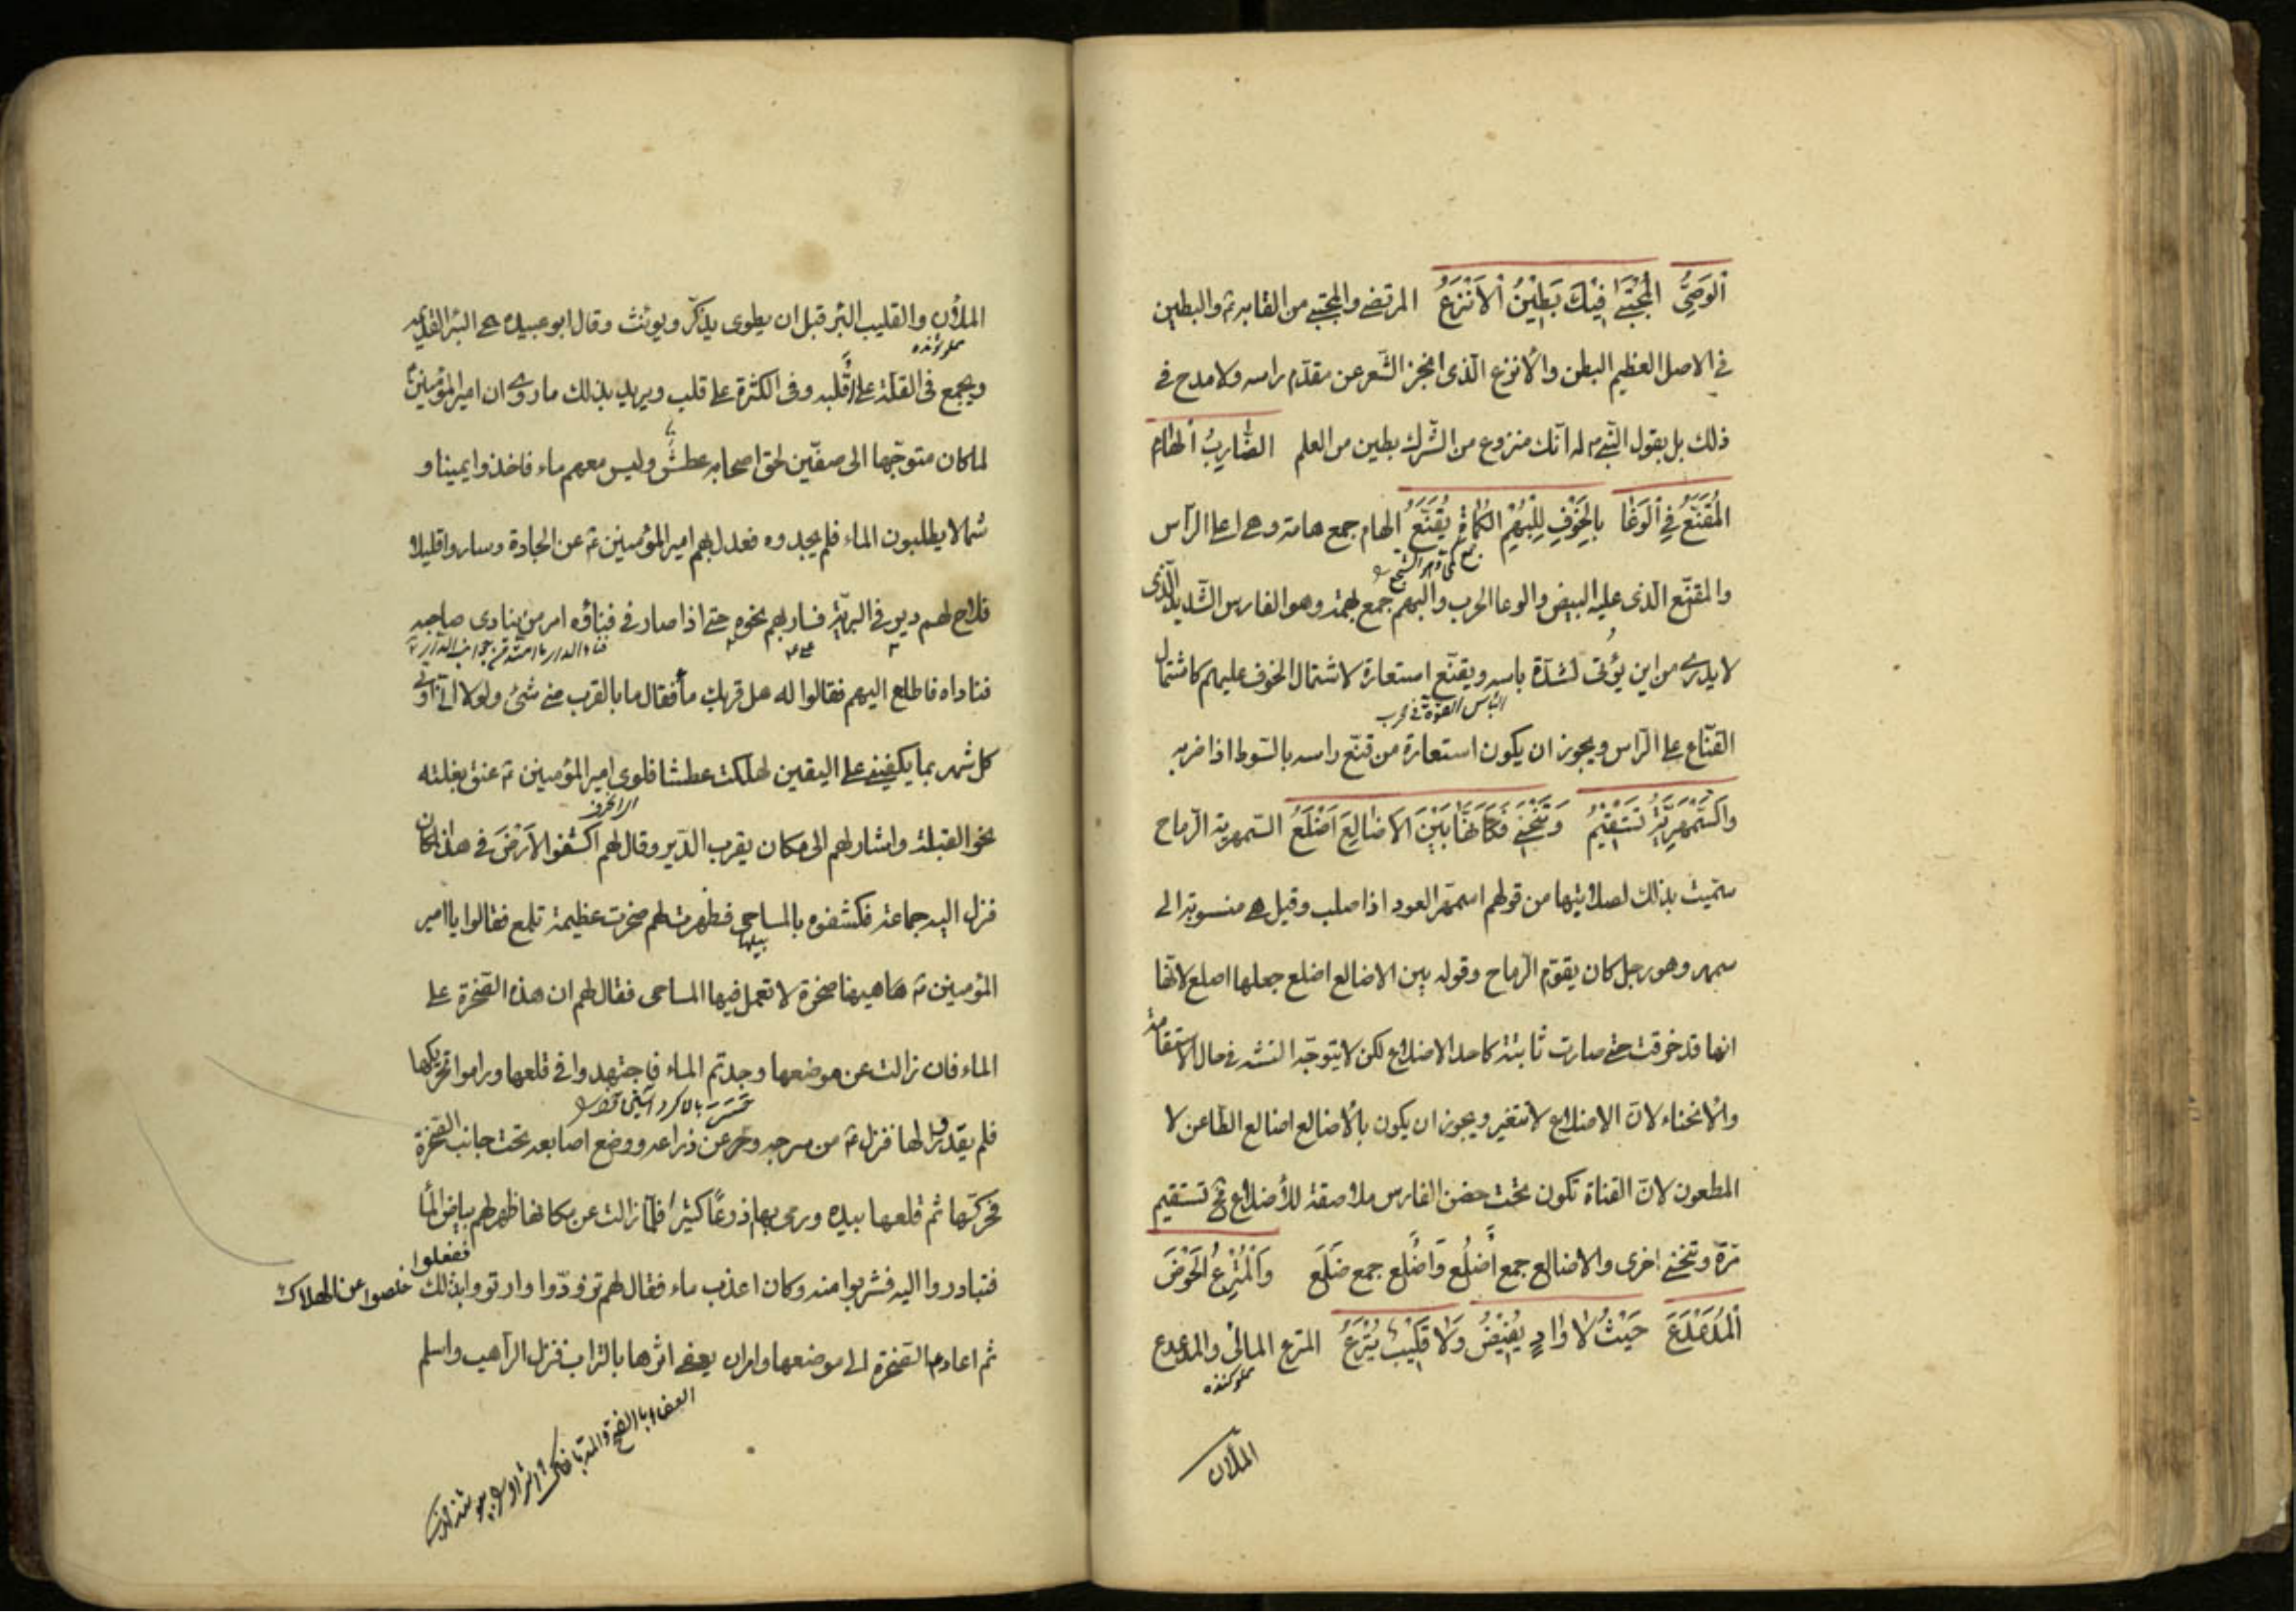 اَلوَصِيُّ المُجْتَبَى فِيْكَ بَطِيْنُ اَلاَنْزَعُ المرتضى والمجتبى من القابه ع والبطين
فى الاصل العظيم البطن والأنزع الّذى انحز الشّعر عن مقدّم راسه ولا مدح فى
ذلك بل بقول النّبى له انّك منزوع من الشّرك بطين من العلم الضّارِبُ اَلهَامَ
المُقَنَّعُ فِي اَلوَغَا بِالخَوْفِ لِلْبُهْمِ الكُمَاةِ يُقَنَّعُ الهام جمع هامة وهى اعلى الرّأس
والمقنّع الذى عليه البيض والوغا الحرب والبهم جمع بهمة وهو الفارس الشّديد الّذى
لا يدرى من اين يؤتى لشدّة باسه ويقنّع استعارة لاشتمال الخوف عليهم كاشتمال
القنّاع على الرّاس ويجوز ان يكون استعارة من قنّع راسه بالسّوط اذا ضربه
وَاَلسَّمْهَرِيَّةُ تَسْتَقِيْمُ وَتَنْحَنِى فَكَاَنَّهَا بَيْنَ الاَضَالِعِ اَضْلَعُ السّمهرية الرّماح
سمّيت بذلك لصلابتها من قولهم اسمهرّ العود اذا صلب وقيل هى منسوبة الى
سمهر وهو رجل كان يقوّم الرّماح وقوله بين الاضالع اضلع جعلها اضلع لانّها
انها قد خرقت حتى صارت ثابتة كاحد الاضلاع لكن لا يتوجّه التشبه فى حال الاستقامة
والأنحناء لانّ الاضلاع لا تتغير ويجوز ان يكون بالأضالع اضالع الطّاعن لا
المطعون لانّ القناة تكون تحت حضن الفارس ملاصقة للأضلاع فهى تستقيم
مرّة وتنحنى اخرى والاضالع جمع أضلُع وَاَضلُع جمع ضَلَع وَاَلْمُتْرِعُ الْحَوْضَ
اَلْمُدَعْدَعَ حَيْثُ لاَ وَادٍ يَفِيْضُ وَلاَ قَلِيْبٌ يُتْرَعُ المترع المالئ والمدعدع
مملو كننده
الملآن
الملأن والقليب البئر قبل ان يطوى يذكّر ويونث وقال ابو عبيدة هى البئر القديمة
مملو شونده
ويجمع فى القلّة على أَقلبه وفى الكثرة على قلب ويريد بذلك ما روى ان امير المؤمنين ع
لما كان متوجّها الى صفّين لحق اصحابه عطش وليس معهم ماء فاخذوا يمينا و
شمالا يطلبون الماء فلم يجدوه فعدل بهم امير المؤمنين ع عن الجادة وساروا قليلا
فلاح لهم دير فى البريّة فسار بهم نحوه حتى اذا صار فى فنائه امر من ينادى صاحبه
فناداه فاطلع اليهم فقالوا له هل قربك مأ فقال ما بالقرب منى شئ ولولا انّى اوتى
كل شهر بما يكفينى على اليقين لهلكت عطشا فلوى امير المؤمنين ع عنق بغلته
نحو القبلة واشار لهم الى مكان يقرب الدّير وقال لهم اكشفوا الأرضَ فى هذا المكان
فنزل اليه جماعة فكشفوه بالمساحى فظهرت لهم صخرت عظيمة تلمع فقالوا يا امير
المؤمنين ع هاهيهنا صخرة لا تعمل فيها المساحى فقال لهم ان هذه الصّخرة على
الماء فان زالت عن موضعها وجدتم الماء فاجتهدوا فى قلعها وراموا تحريكها
فلم يقدروا لها فنزل ع من سرجه وحسر عن ذراعه ووضع اصابعه تحت جانب الصّخرة
فحركّها ثم قلعها بيده ورمى بها ذروعًا كثيرا فلمّا زالت عن مكانها ظهر لهم بياض المأ
فتبادروا اليه فشربوا منه وكان اعذب ماء فقال لهم تزودّوا وارتووا ففعلوا بذلك خلصوا عن الهلاك
ثم اعاد ع الصّخرة الى موضعها وامر ان يعفى اثرها بالتراب فنزل الرّاهب واسلم